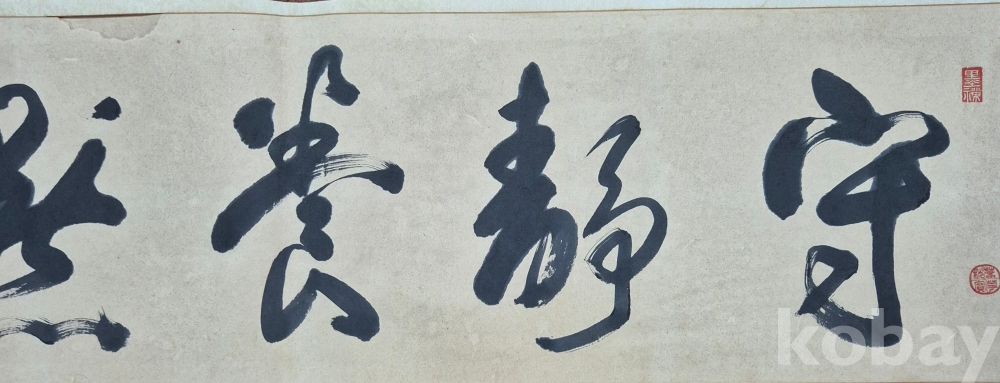 守靜養默
kobay